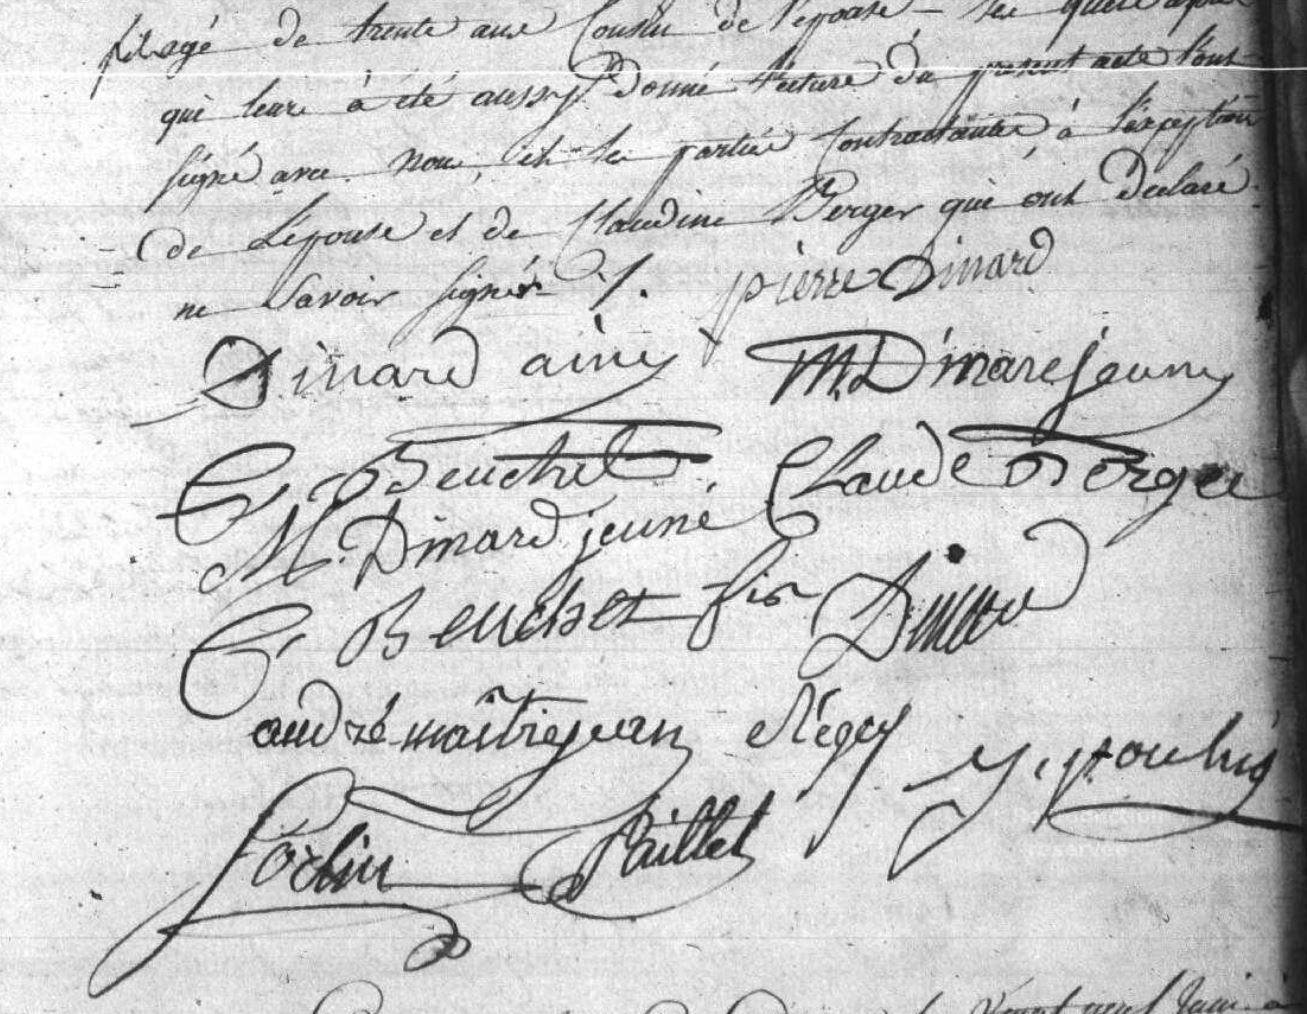 fils agé de trente ans Cousin de l'épouse – les quels après
qui leurs à été aussy Donné Lecture du present acte l'ont
signé avec nous, et les parties Contractantes, à l'exception
de L'épouse et de Claudine Berger qui ont Declaré
ne Savoir signér ./. pierre Dinard
Dinard ainé M. Dinard jeune
C. Beuchet Claude Berger
M. Dinard jeune
C. Beuchot fis Dinard
andré maîtrejean Régey
Paillet
Vingt neuf Juin à